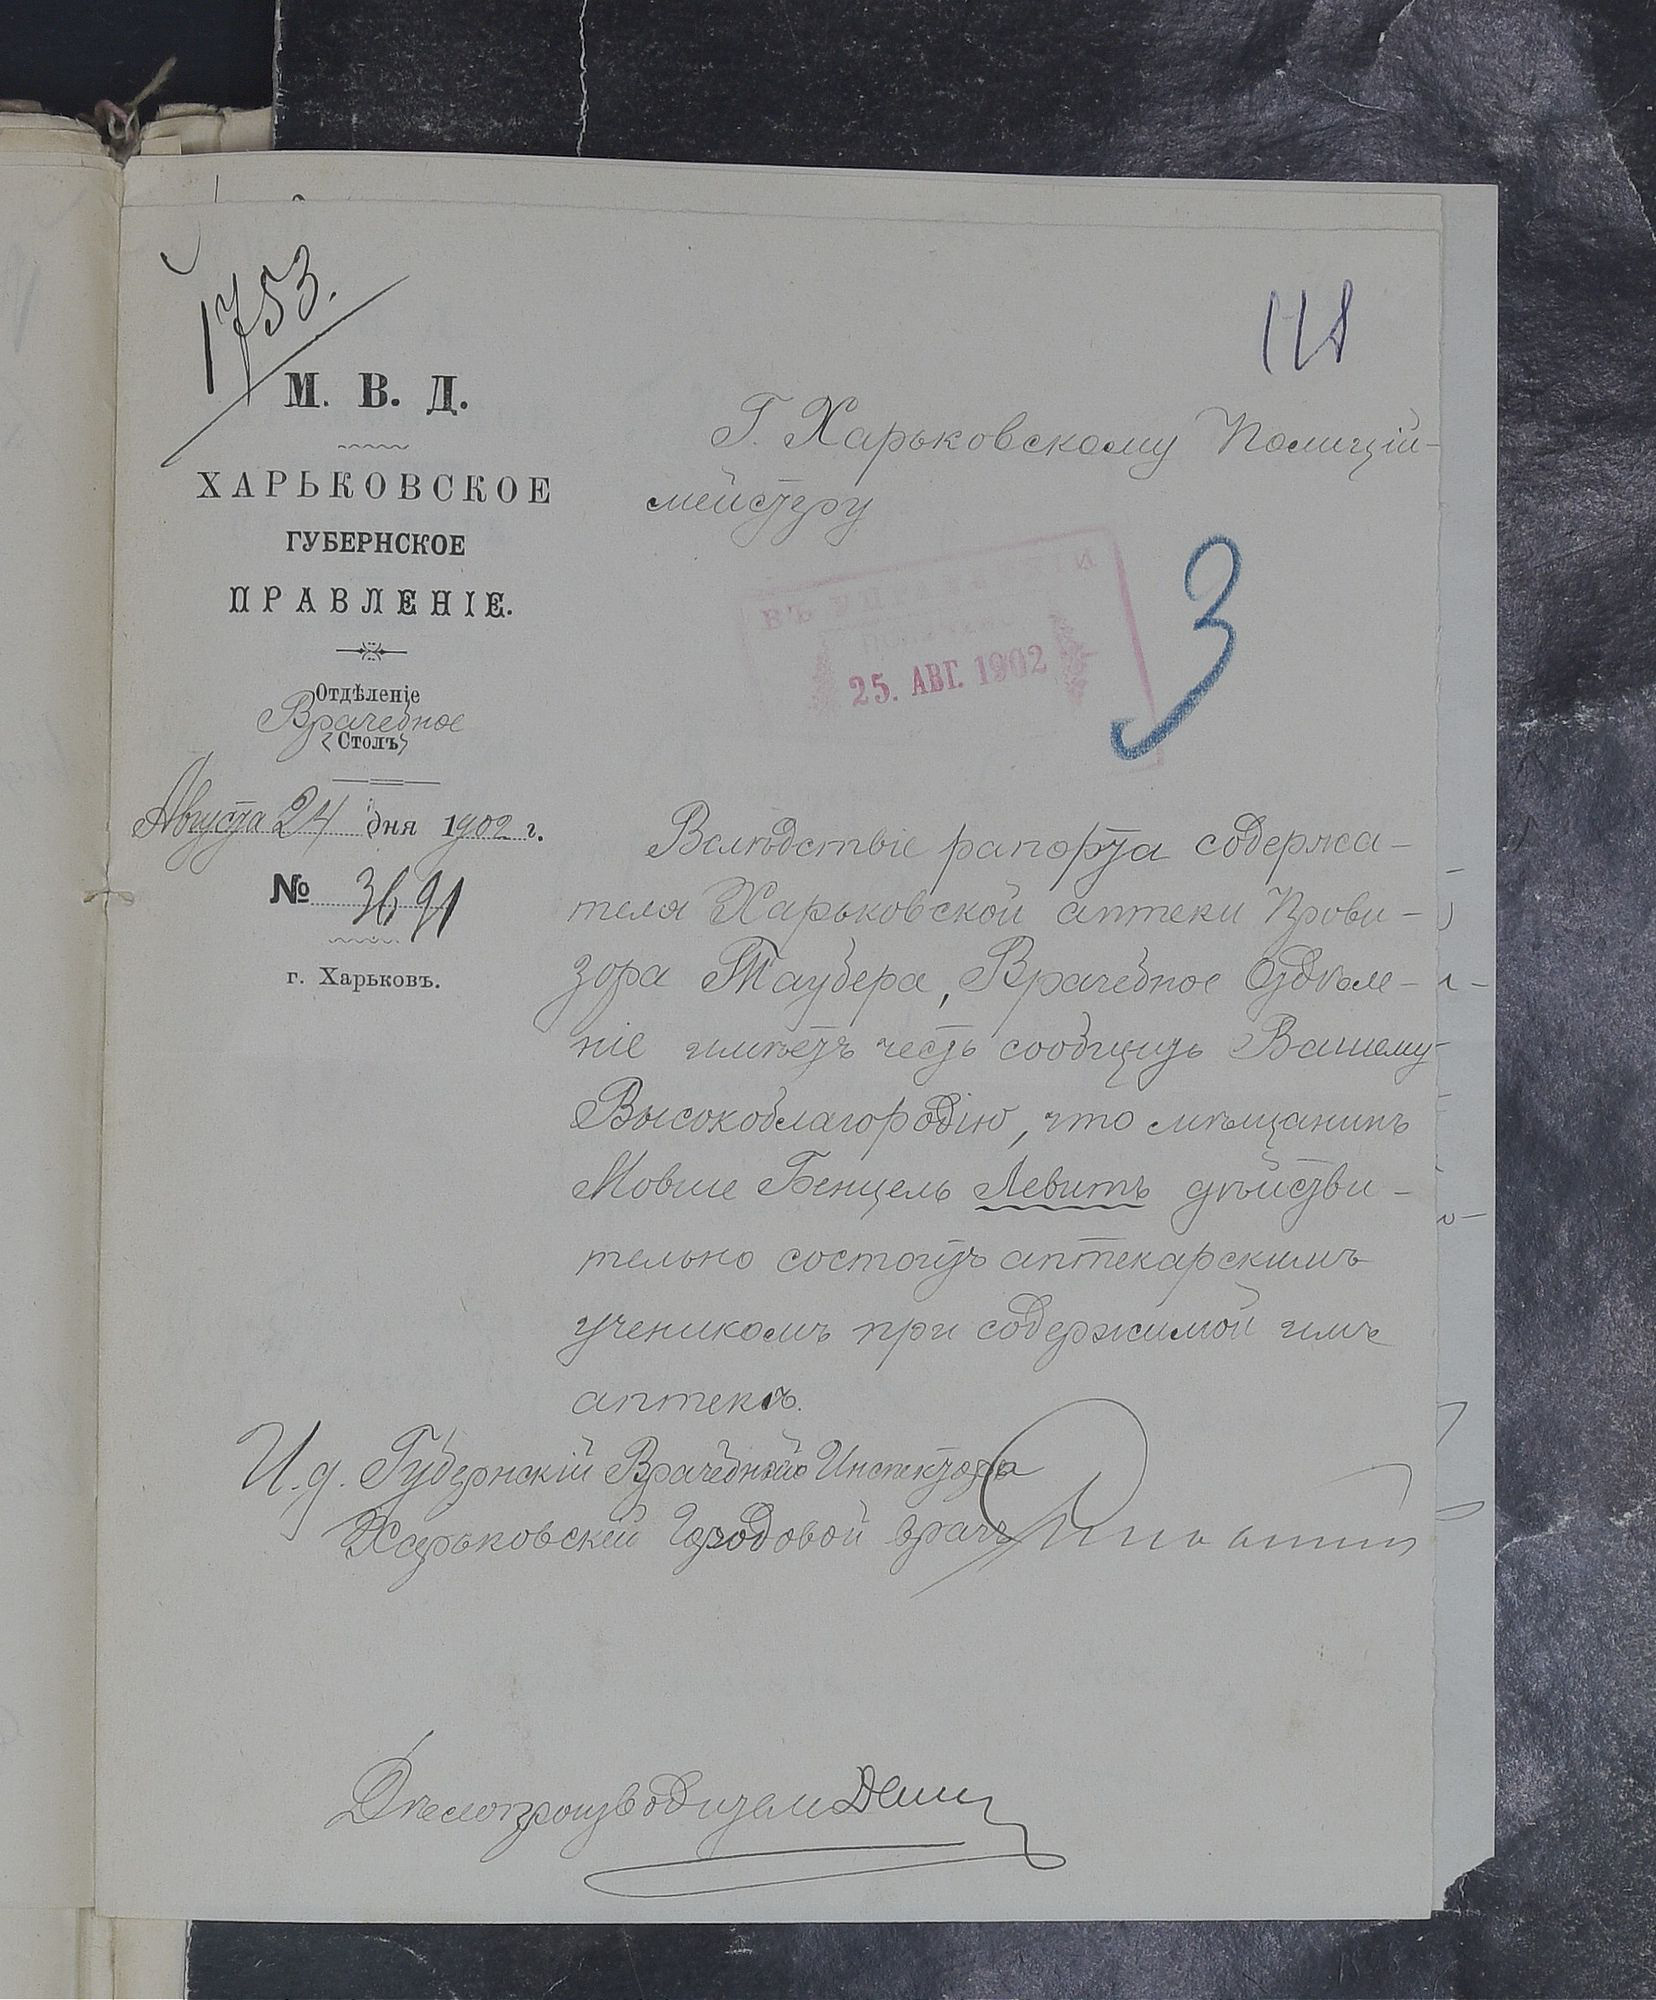 1753.
118
М. В. Д.
ХАРЬКОВСКОЕ
ГУБЕРНСКОЕ
ПРАВЛЕНІЕ.
Отдѣленіе
Врачебное
Столъ
Августа 24 дня 1902 г.
№ 3691
г. Харьковъ.
Г. Харьковскому Полицій-
мейстеру
25. АВГ. 1902
3
Вслѣдствіе рапорта содержа-
теля Харьковской аптеки Прови-
зора Таубера, Врачебное Отдѣле-
ніе имѣетъ честь сообщить Вашему
Высокоблагородію, что мѣщанинъ
Мовше Бенцель Левитъ дѣйстви-
тельно состоитъ аптекарскимъ
ученикомъ при содержимой имъ
аптекѣ.
И.д. Губернскій Врачебный Инспектора
Харьковскій Городовой врачъ
Дѣлопроизводитель